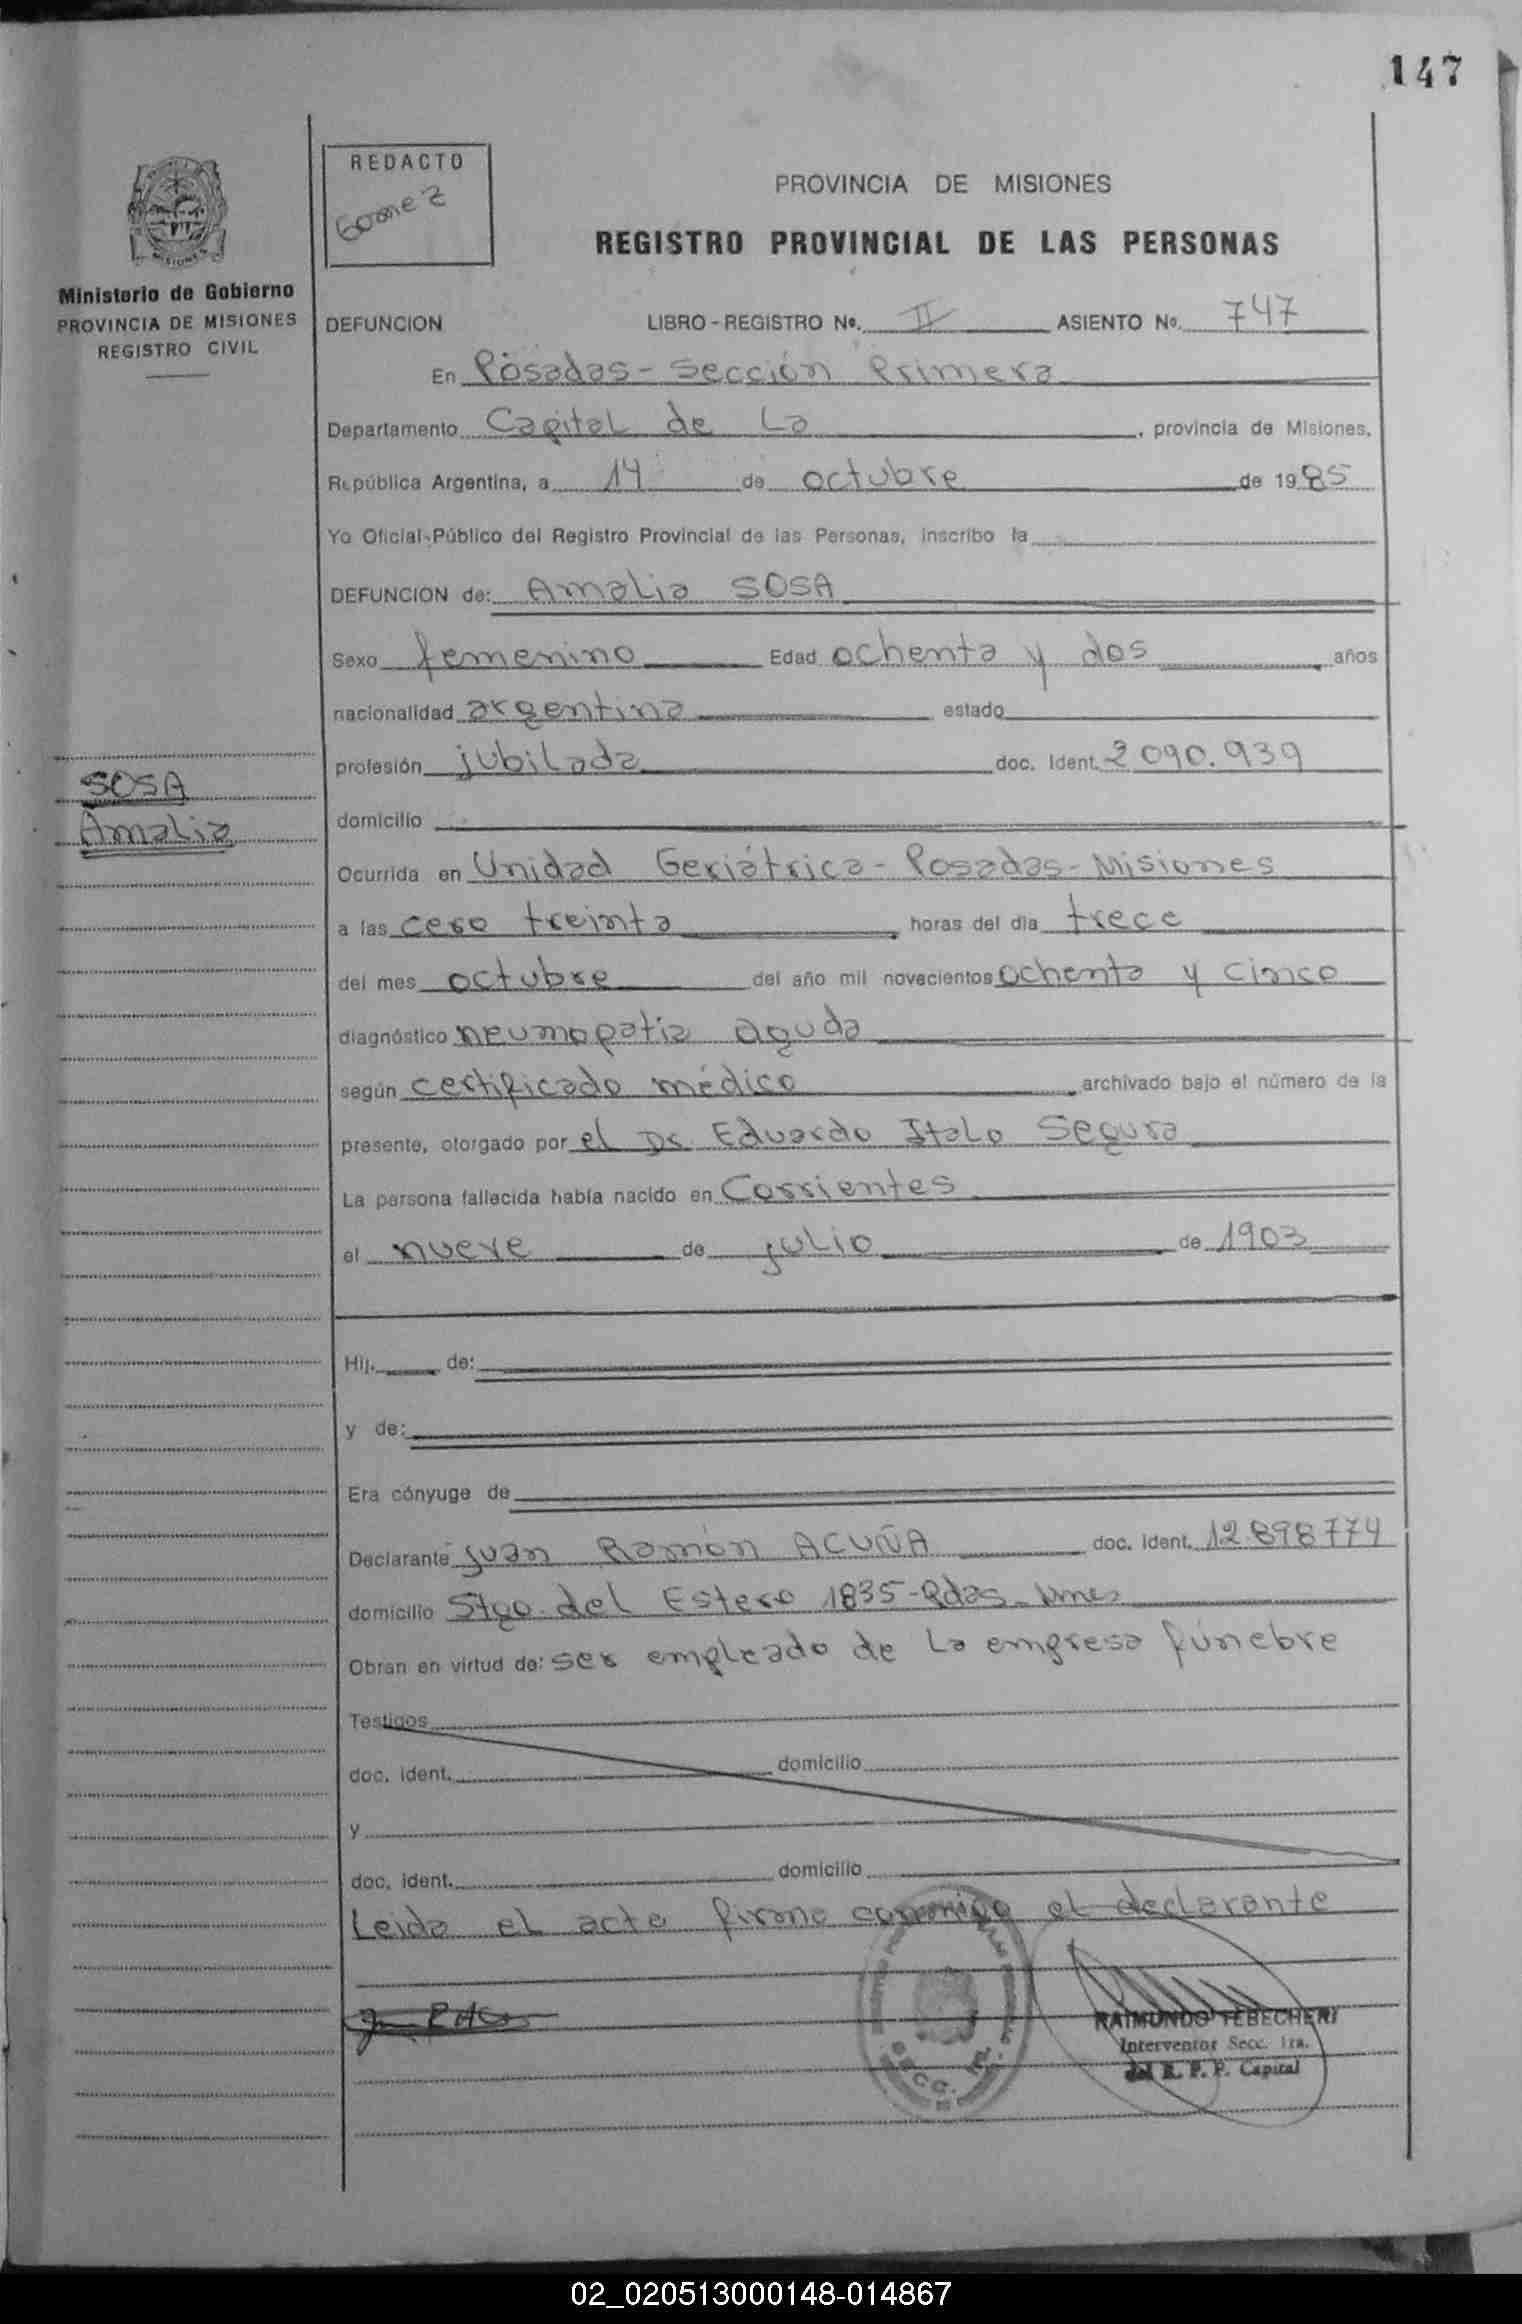 147
REDACTO
Gomez
PROVINCIA DE MISIONES
REGISTRO PROVINCIAL DE LAS PERSONAS
MISIONES
Ministerio de Gobierno
PROVINCIA DE MISIONES
REGISTRO CIVIL
DEFUNCION LIBRO-REGISTRO No. II ASIENTO No. 747
En Posadas - Sección Primera
Departamento Capital de La, provincia de Misiones,
República Argentina, a 14 de octubre de 1985
Yo Oficial Público del Registro Provincial de las Personas, inscribo la
DEFUNCION de: Amalia SOSA
Sexo femenino Edad ochenta y dos años
nacionalidad argentina estado
profesión jubilada doc. Ident. 2090.939
SOSA
Amalia
domicilio
Ocurrida en Unidad Geriátrica - Posadas - Misiones
a las cero treinta horas del día trece
del mes octubre del año mil novecientos ochenta y cinco
diagnóstico neumopatia aguda
según certificado médico, archivado bajo el número de la
presente, otorgado por el Dr. Eduardo Italo Segura
La persona fallecida había nacido en Corrientes
el nueve de julio de 1903
Hij. de:
y de:
Era cónyuge de
Declarante Juan Ramón ACUÑA doc. Ident. 12.898774
domicilio Stgo. del Estero 1835 - Pdas - Mnes
Obran en virtud de: ser empleado de La empresa fúnebre
Testigos
doc. ident. domicilio
y
doc. ident. domicilio
Leida el acta firma conmigo el declarante
RAIMUNDO TEBECHERI
Interventor Secc. 1ra.
del R. P. P. Capital
SECC. 1ª
02_020513000148-014867